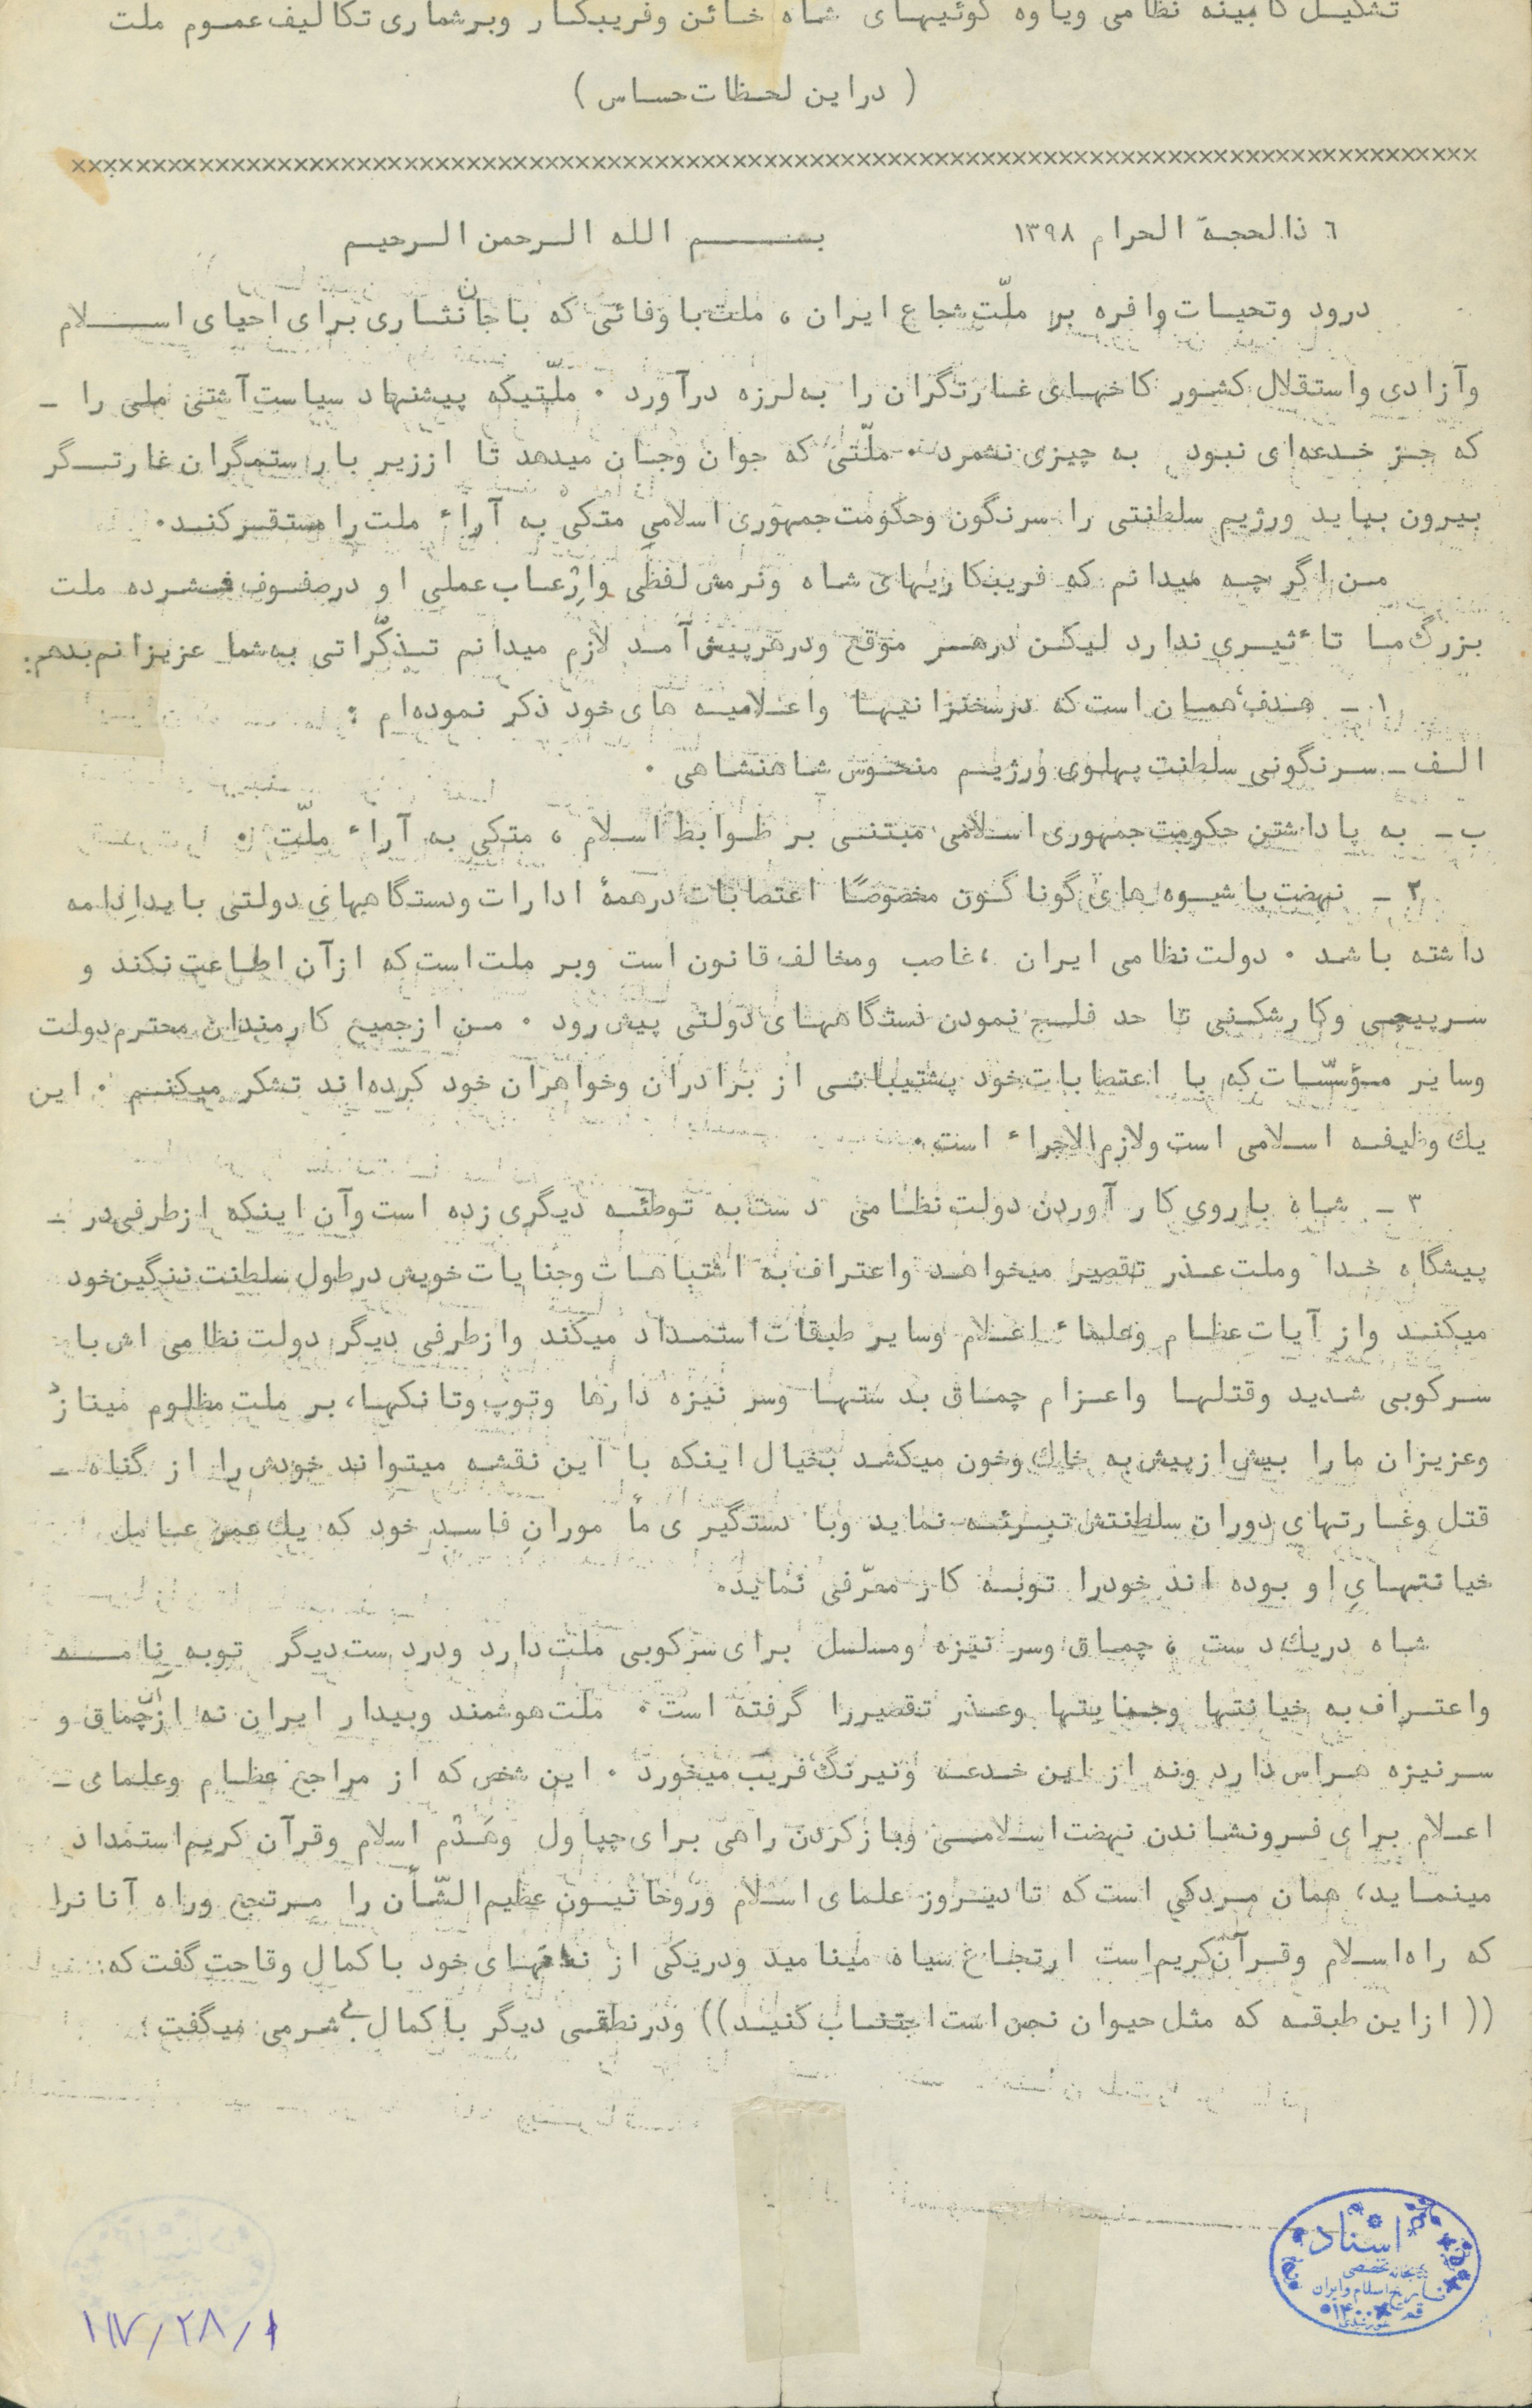 تشکیل کابینه نظامی ویاوه گوئیهای شاه خائن وفریبکار وبرشماری تکالیف عموم ملت
( دراین لحظات حساس )
××××××××××××××××××××××××××××××××××××××××××××××××××××××××××××××××××××××××××××××××××××××××
٦ ذالحجة الحرام ١٣٩٨ بسم الله الرحمن الرحیم
درود وتحیات وافره بر ملّت شجاع ایران ، ملت باوفائی که با جانْنثاری برای احیای اسلام
وآزادی واستقلال کشور کاخهای غارتگران را به لرزه درآورد ٠ ملّتیکه پیشنهاد سیاست آشتی ملی را ـ
که جز خدعه‌ای نبود به چیزی نشمرد ٠ ملّتی که جوان وجان میدهد تا اززیر بار ستمگران غارتگر
بیرون بیاید ورژیم سلطنتی را سرنگون وحکومت جمهوری اسلامیِ متکی به آراء ملت را مستقرکند٠
من اگرچه میدانم که فریبکاریهای شاه ونرمش لفظی واِرْعاب عملی او درصفوف فشرده ملت
بزرگ ما تأثیری ندارد لیکن درهر موقع ودرهرپیش آمد لازم میدانم تذکّراتی به شما عزیزانم بدهم:
١ ـ هدف همان است که درسخنرانیها واعلامیه های خود ذکر نموده‌ام :
الف ـ سرنگونی سلطنت پهلوی ورژیم منحوس شاهنشاهی ٠
ب ـ به پا داشتن حکومت جمهوری اسلامی مبتنی بر ظوابط اسلام ، متکی به آراء ملّت ٠
٢ ـ نهضت با شیوه های گوناگون مخصوصًا اعتصابات درهمهٔ ادارات ودستگاههای دولتی باید اِدامه
داشته باشد ٠ دولت نظامی ایران ، غاصب ومخالف قانون است وبر ملت است که ازآن اطاعت نکند و
سرپیچی وکارشکنی تا حد فلج نمودن دستگاههای دولتی پیش رود ٠ من ازجمیع کارمندان محترم دولت
وسایر مؤسّسات که با اعتصابات خود پشتیبانی از برادران وخواهران خود کرده‌اند تشکر میکنم ٠ این
یك وظیفه اسلامی است ولازم الاجراء است ٠
٣ ـ شاه باروی کار آوردن دولت نظامی دست به توطئه دیگری زده است وآن اینکه ازطرفی در ـ
پیشگاه خدا وملت عذر تقصیر میخواهد واعتراف به اشتباهات وجنایات خویش درطول سلطنت ننگین خود
میکند واز آیات عظام وعلماء اعلام وسایر طبقات استمداد میکند وازطرفی دیگر دولت نظامی اش با
سرکوبی شدید وقتلها واعزام چماق بدستها وسر نیزه دارها وتوپ وتانکها، بر ملت مظلوم میتازد
وعزیزان مارا بیش ازپیش به خاك وخون میکشد بخیال اینکه با این نقشه میتواند خودش را از گناه ـ
قتل وغارتهای دوران سلطنتش تبرئه نماید وبا دستگیری مأ مورانِ فاسدِ خود که یك عمر عامل
خیانتهایِ او بوده اند خودرا توبه کار معرّفی نماید٠
شاه دریك دست ، چماق وسر نیزه ومسلسل برای سرکوبی ملت دارد ودردست دیگر توبه نامه
واعتراف به خیانتها وجنایتها وعذر تقصیررا گرفته است ٠ ملت هوشمند وبیدار ایران نه ازآن چماق و
سرنیزه هراس دارد ونه از این خدعه ونیرنگ فریب میخورد ٠ این شخص که از مراجع عظام وعلمای ـ
اعلام برای فرونشاندن نهضت اسلامی وبازکردن راهی برای چپاول وهَدْم اسلام وقرآن کریم استمداد
مینماید، همان مردکی است که تا دیروز علمای اسلام وروحانیون عظیم الشّأن را مرتجع وراه آنانرا
که راه اسلام وقرآن کریم است ارتجاع سیاه مینامید ودریکی از نطقهای خود با کمال وقاحت گفت که:
(( ازاین طبقه که مثل حیوان نجس است اجتناب کنید)) ودرنطقی دیگر با کمال بی شرمی میگفت :
اسناد
کتابخانه تخصصی
تاریخ اسلام و ایران
قم
١١٧/٢٨/١